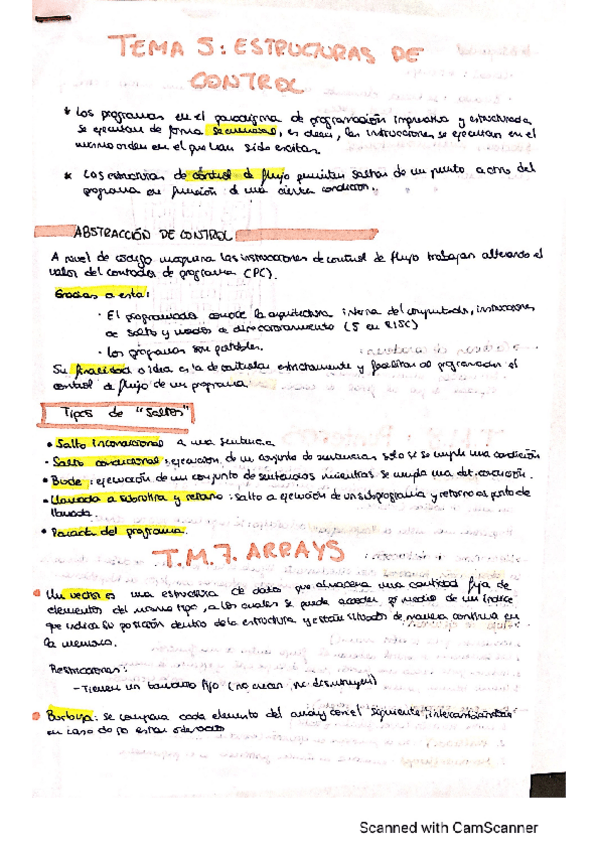 TEMA 5: ESTRUCTURAS DE
CONTROL
* Los programas en el paradigma de programación imperativa y estructurada
se ejecutan de forma secuencial, es decir, las instrucciones se ejecutan en el
mismo orden en el que han sido escritas.
* Las estructuras de control d flujo permiten saltar de un punto a otro del
programa en función d una cierta condición.
ABSTRACCIÓN DE CONTROL
A nivel de código maquina las instrucciones de control de flujo trabajan alterando el
valor del contador de programa (PC).
Gracias a esta:
· El programador conoce la arquitectura interna del computador, instrucciones
de salto y modos de direccionamiento (5 en RISC)
· Los programas son portables.
Su finalidad o idea es la de controlar estrictamente y facilitar al programador el
control de flujo de un programa.
Tipos de "Saltos"
• Salto incondicional a una sentencia
- Salto condicional: ejecución de un conjunto de sentencias solo si se cumple una condición
• Bucle: ejecución de un conjunto de sentencias mientras se cumpla una det. condición.
- Llamada a subrutina y retorno: salto a ejecución de un subprograma y retorno al punto de
llamada.
• Parada del programa.
T.M.7. ARRAYS
• Un vector es una estructura de datos que almacena una cantidad fija de
elementos del mismo tipo, a los cuales se puede acceder por medio de un índice
que indica su posición dentro de la estructura y están situados de manera continua en
la memoria.
Restricciones:
- Tienen un tamaño fijo (no crecen, ni disminuyen)
• Burbuja: se compara cada elemento del array con el siguiente, intercambiándose
en caso de no estar ordenado
Scanned with CamScanner